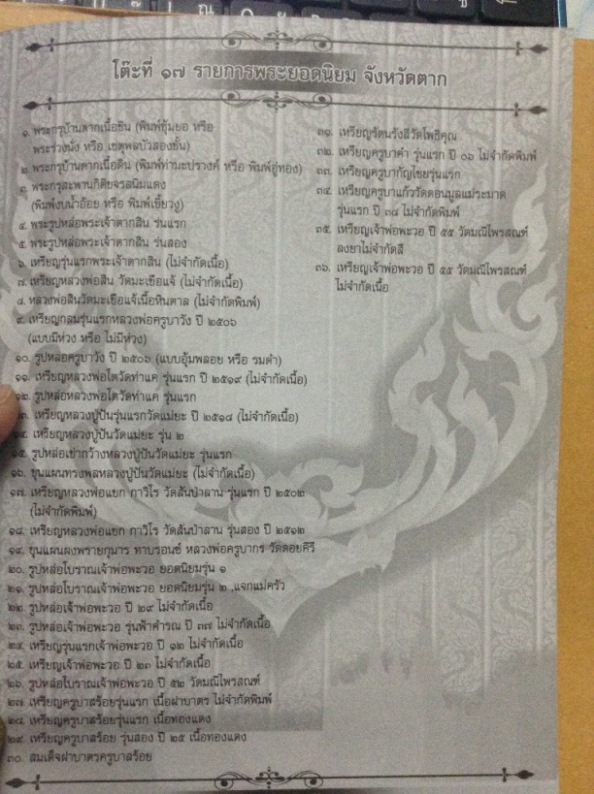 โต๊ะที่ ๑๗ รายการพระยอดนิยม จังหวัดตาก
๑. พระกรุบ้านตากเนื้อชิน (พิมพ์ซุ้มยอ หรือ
พระร่วงนั่ง หรือ เชตุพลบัวสองชั้น)
๒. พระกรุบ้านตากเนื้อดิน (พิมพ์ท่ามะปรางค์ หรือ พิมพ์อู่ทอง)
๓. พระกรุสะพานกิติยจรสนิมแดง
(พิมพ์งบน้ำอ้อย หรือ พิมพ์เขี้ยวงู)
๔. พระรูปหล่อพระเจ้าตากสิน รุ่นแรก
๕. พระรูปหล่อพระเจ้าตากสิน รุ่นสอง
๖. เหรียญรุ่นแรกพระเจ้าตากสิน (ไม่จำกัดเนื้อ)
๗. เหรียญหลวงพ่อสิน วัดมะเขือแจ้ (ไม่จำกัดเนื้อ)
๘. หลวงพ่อสินวัดมะเขือแจ้เนื้อหินตาล (ไม่จำกัดพิมพ์)
๙. เหรียญกลมรุ่นแรกหลวงพ่อครูบาวัง ปี ๒๕๐๖
(แบบมีห่วง หรือ ไม่มีห่วง)
๑๐. รูปหล่อครูบาวัง ปี ๒๕๐๖ (แบบอุ้มพลอย หรือ รมดำ)
๑๑. เหรียญหลวงพ่อโตวัดท่าแค รุ่นแรก ปี ๒๕๑๙ (ไม่จำกัดเนื้อ)
๑๒. รูปหล่อหลวงพ่อโตวัดท่าแค รุ่นแรก
๑๓. เหรียญหลวงปู่ปันรุ่นแรกวัดแม่ยะ ปี ๒๕๑๘ (ไม่จำกัดเนื้อ)
๑๔. เหรียญหลวงปู่ปันวัดแม่ยะ รุ่น ๒
๑๕. รูปหล่อเข่ากว้างหลวงปู่ปันวัดแม่ยะ รุ่นแรก
๑๖. ขุนแผนทรงพลหลวงปู่ปันวัดแม่ยะ (ไม่จำกัดเนื้อ)
๑๗. เหรียญหลวงพ่อแยก ถาวิโร วัดสันป่าลาน รุ่นแรก ปี ๒๕๐๒
(ไม่จำกัดพิมพ์)
๑๘. เหรียญหลวงพ่อแยก ถาวิโร วัดสันป่าลาน รุ่นสอง ปี ๒๕๑๒
๑๙. ขุนแผนผงพรายกุมาร ทาบรอนซ์ หลวงพ่อครูบากร วัดดอยคีรี
๒๐. รูปหล่อโบราณเจ้าพ่อพะวอ ยอดนิยมรุ่น ๑
๒๑. รูปหล่อโบราณเจ้าพ่อพะวอ ยอดนิยมรุ่น ๒ ,แจกแม่ครัว
๒๒. รูปหล่อเจ้าพ่อพะวอ ปี ๒๙ ไม่จำกัดเนื้อ
๒๓. รูปหล่อเจ้าพ่อพะวอ รุ่นฟ้าคำรณ ปี ๓๗ ไม่จำกัดเนื้อ
๒๔. เหรียญรุ่นแรกเจ้าพ่อพะวอ ปี ๑๒ ไม่จำกัดเนื้อ
๒๕. เหรียญเจ้าพ่อพะวอ ปี ๒๓ ไม่จำกัดเนื้อ
๒๖. รูปหล่อโบราณเจ้าพ่อพะวอ ปี ๕๒ วัดมณีไพรสณฑ์
๒๗. เหรียญครูบาสร้อยรุ่นแรก เนื้อฝาบาตร ไม่จำกัดพิมพ์
๒๘. เหรียญครูบาสร้อยรุ่นแรก เนื้อทองแดง
๒๙. เหรียญครูบาสร้อย รุ่นสอง ปี ๒๕ เนื้อทองแดง
๓๐. สมเด็จฝาบาตรครูบาสร้อย
๓๑. เหรียญรัตนรังสีวัดโพธิคุณ
๓๒. เหรียญครูบาคำ รุ่นแรก ปี ๐๖ ไม่จำกัดพิมพ์
๓๓. เหรียญครูบากัญไชยรุ่นแรก
๓๔. เหรียญครูบาแก้ววัดดอนมูลแม่ระมาด
รุ่นแรก ปี ๓๘ ไม่จำกัดพิมพ์
๓๕. เหรียญเจ้าพ่อพะวอ ปี ๕๕ วัดมณีไพรสณฑ์
ลงยาไม่จำกัดสี
๓๖. เหรียญเจ้าพ่อพะวอ ปี ๕๕ วัดมณีไพรสณฑ์
ไม่จำกัดเนื้อ